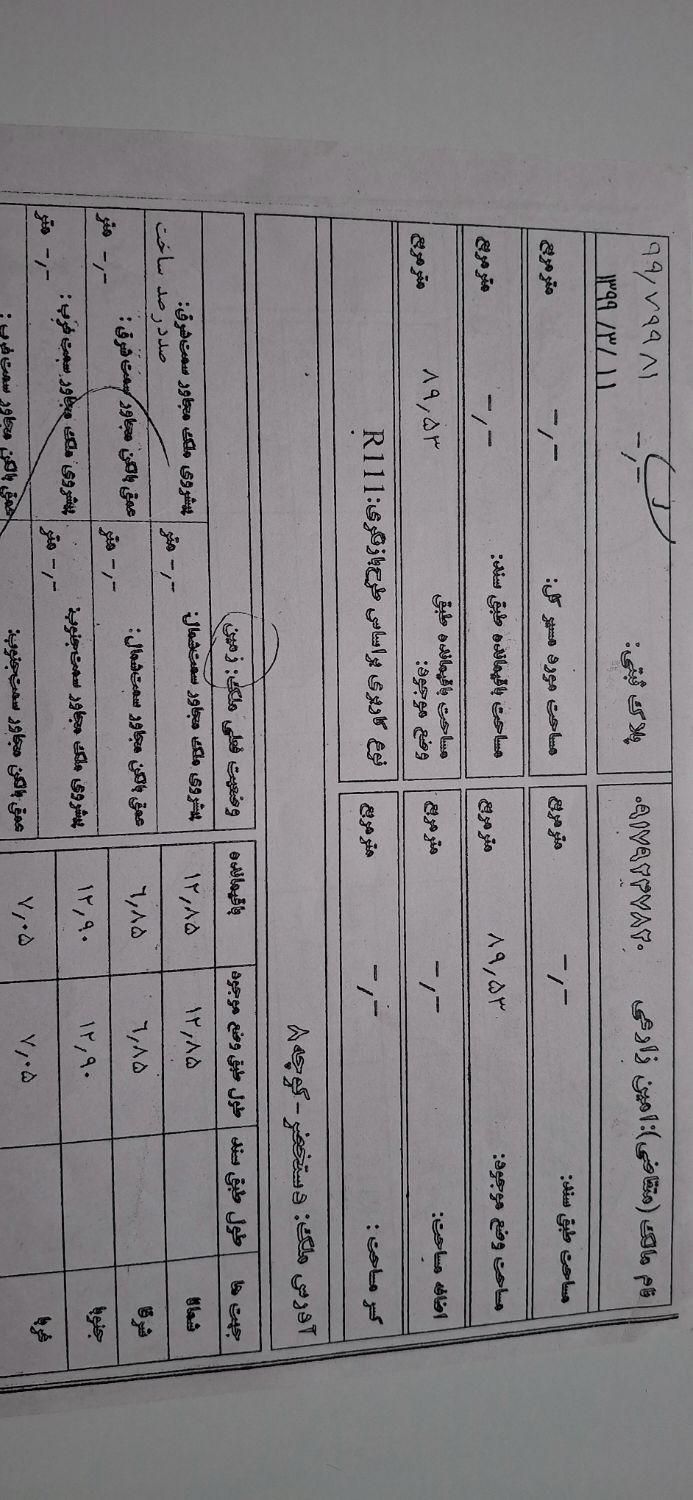 نام مالک (متقاضی): امین زارعی ۰۹۱۷۹۲۳۷۸۲۰
پلاک ثبتی: -,-
۹۹,۷۹۹۸۱
۱۳۹۹/۳/۱۱
مساحت طبق سند: -,- متر مربع
مساحت مورد مسیر کل: -,- متر مربع
مساحت وضع موجود: ۸۹,۵۳ متر مربع
مساحت باقیمانده طبق سند: -,- متر مربع
اضافه مساحت: -,- متر مربع
مساحت باقیمانده طبق وضع موجود: ۸۹,۵۳ متر مربع
کسر مساحت: -,- متر مربع
نوع کاربری براساس طرح بازنگری: R111
آدرس ملک: دستخضر - کوچه ۸
جهت ها طول طبق سند طول طبق وضع موجود باقیمانده
شمالا ۱۲,۸۵ ۱۲,۸۵
شرقا ۶,۸۵ ۶,۸۵
جنوبا ۱۲,۹۰ ۱۲,۹۰
غربا ۷,۰۵ ۷,۰۵
وضعیت فعلی ملک: زمین
پیشروی ملک مجاور سمت شمال: -,- متر
پیشروی ملک مجاور سمت شرق:
صددرصد ساخت
عمق بالکن مجاور سمت شمال: -,- متر
عمق بالکن مجاور سمت شرق: -,- متر
پیشروی ملک مجاور سمت جنوب: -,- متر
پیشروی ملک مجاور سمت غرب: -,- متر
عمق بالکن مجاور سمت جنوب:
عمق بالکن مجاور سمت غرب: